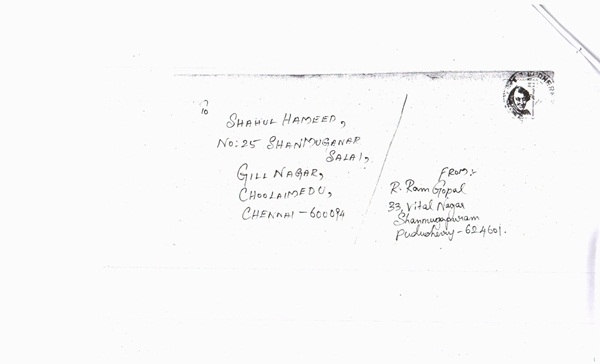 To
SHAHUL HAMEED,
NO: 25 SHANMUGANAR
SALAI,
GILL NAGAR,
CHOOLAIMEDU,
CHENNAI - 600094
FROM:-
R. Ram Gopal
33, Vital Nagar
Shanmugapuram
Puducherry - 624601.